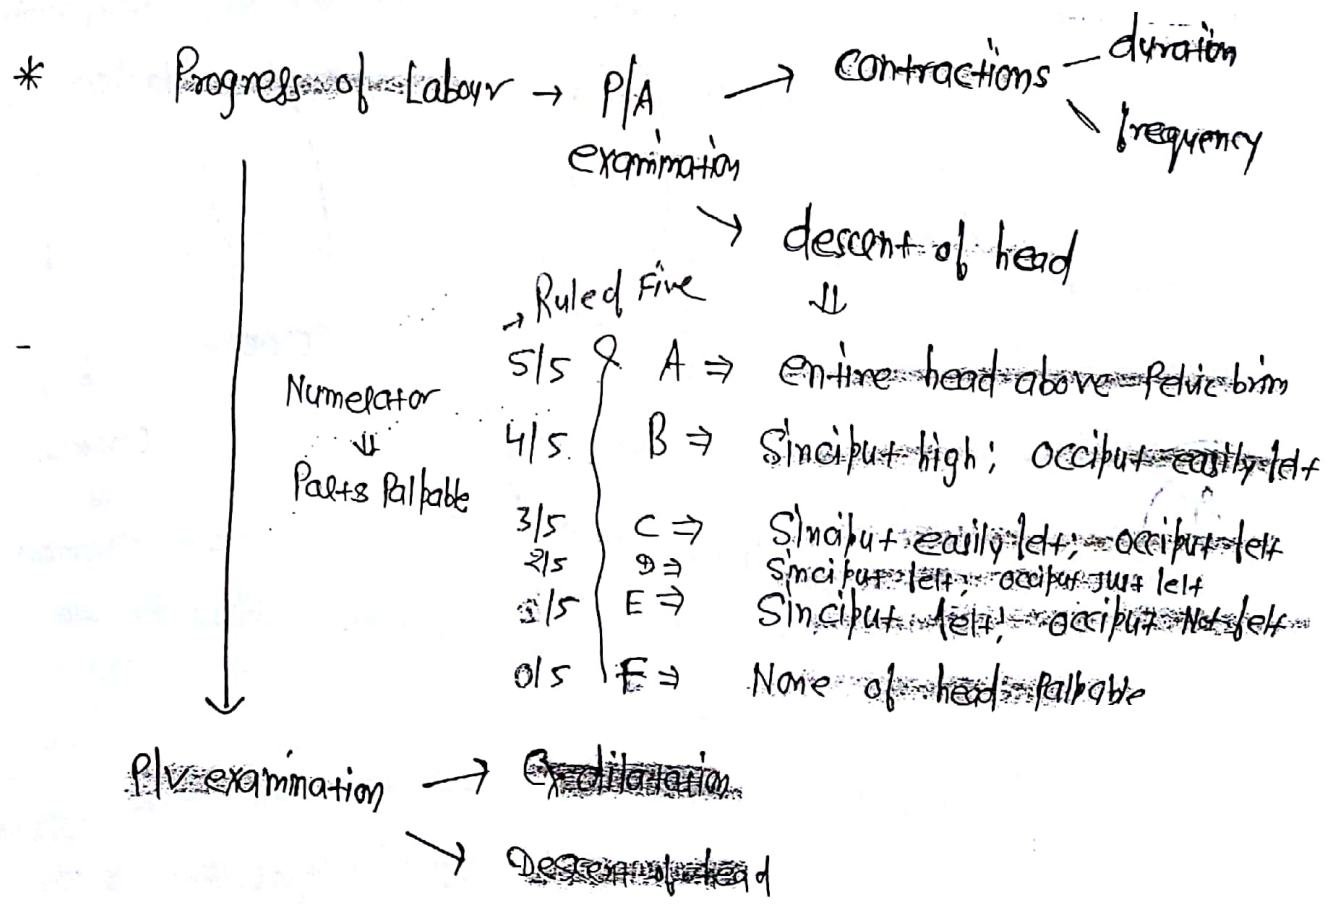 * Progress of Labour → P/A examination → contractions — duration
frequency
→ descent of head
⇓
→ Rule of Five
5/5 A ⇒ entire head above Pelvic brim
Numerator
⇓
Parts Palpable
4/5 B ⇒ Sinciput high; occiput easily felt
3/5 C ⇒ Sinciput easily felt; occiput felt
2/5 D ⇒ Sinciput felt; occiput Just felt
1/5 E ⇒ Sinciput felt; occiput Not felt
0/5 F ⇒ None of head Palpable
P/V examination → Cx dilatation
→ Descent of head